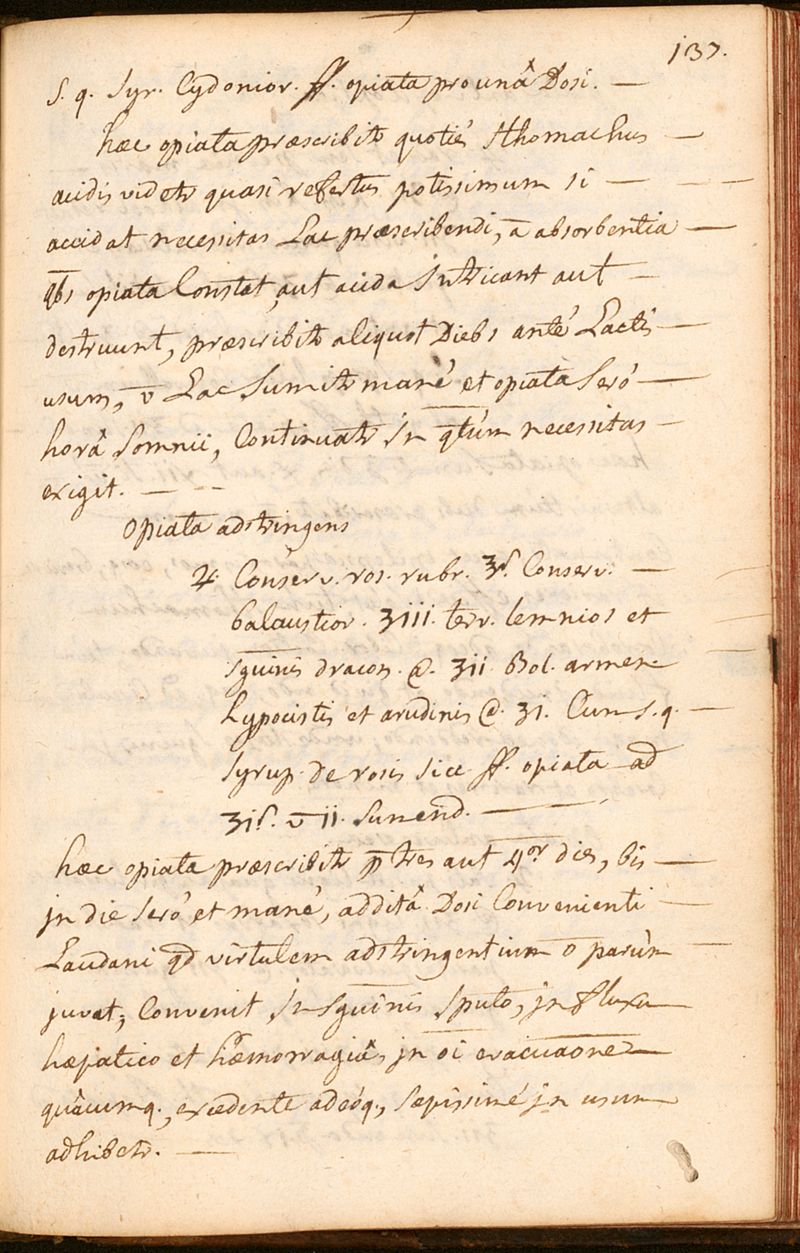 137.
S. q. Syr. Cydonior. ff. opiata pro unâ Dosi. —
hæc opiata præscribitr quotiés Sthomachus —
acidis videtr quasi refertus potissimum si —
accidat necessitas Lac præscribendi, ā absorbentia —
qbs opiata Constat, aut acida Intricant aut —
destruunt, præscribitr aliquot Diebs anté Lactis —
usum, v̄ Lac Sumitr mané et opiata Seró —
horâ Somnii, Continuatr In qtúm necessitas —
exigit. — —
Opiata adstringens
♃ Conserv. ros. rubr. ʒſ. Conserv. —
balaustior. ʒiii. terr. lemnios et
sguinis dracon. @. ʒii. Bol. armen
hypocistis et arudinis @. ʒi. Cum s. q. —
Syrup. de rosis sicc ff. opiata ad
ʒiſ. v̄ ii. Sumend. —
hæc opiata præscribitr p̄ tres aut 4or dies, bis —
jn die Seró et mané, additâ Dosi Convenienti —
Laudani qd virtutem adstringentium o parúm —
juvat; Convenit In sguinis Sputo, jn fluxu
hæpatico et hæmorragiâ, jn oi evacuaone
quâcumq., excedente adeóq., Sæpissimé jn usum
adhibetr. —